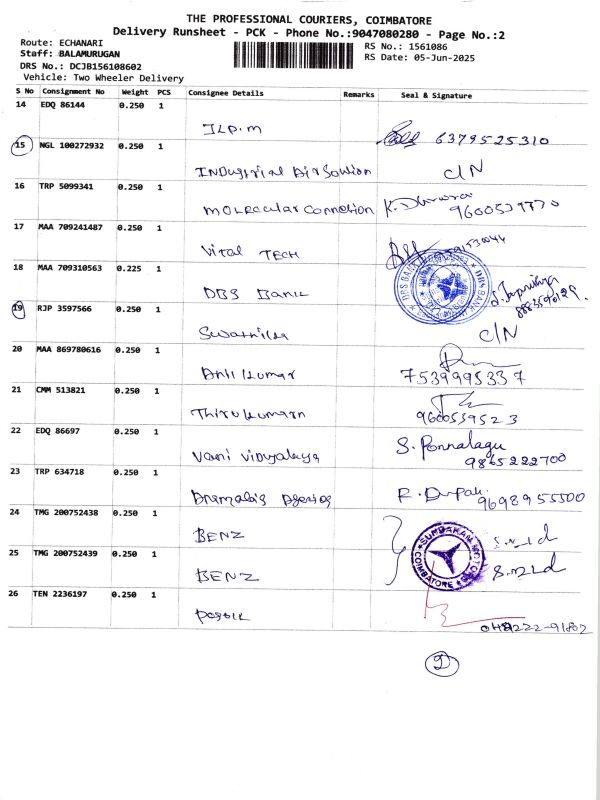 THE PROFESSIONAL COURIERS, COIMBATORE
Delivery Runsheet - PCK - Phone No.:9047080280 - Page No.:2
Route: ECHANARI
RS No.: 1561086
Staff: BALAMURUGAN
RS Date: 05-Jun-2025
DRS No.: DCJB156108602
Vehicle: Two Wheeler Delivery
S No Consignment No Weight PCS Consignee Details Remarks Seal & Signature
14 EDQ 86144 0.250 1
6379525310
15 NGL 100272932 0.250 1
Industrial Air Solution C/N
16 TRP 5099341 0.250 1
Molrcular Connection
17 MAA 709241487 0.250 1
Vital TECH
18 MAA 709310563 0.225 1
DBS Bank
DRS BANK
19 RJP 3597566 0.250 1
C/N
20 MAA 869780616 0.250 1
Anil Kumar 7539995337
21 CMM 513821 0.250 1
Thirukumarn 9600539523
22 EDQ 86697 0.250 1
S. Ponnalagu
Vani Vidyalaya 9865222700
23 TRP 634718 0.250 1
9698955500
24 TMG 200752438 0.250 1
BENZ
SUNDARAM MOTORS
COIMBATORE
25 TMG 200752439 0.250 1
BENZ
26 TEN 2236197 0.250 1
2